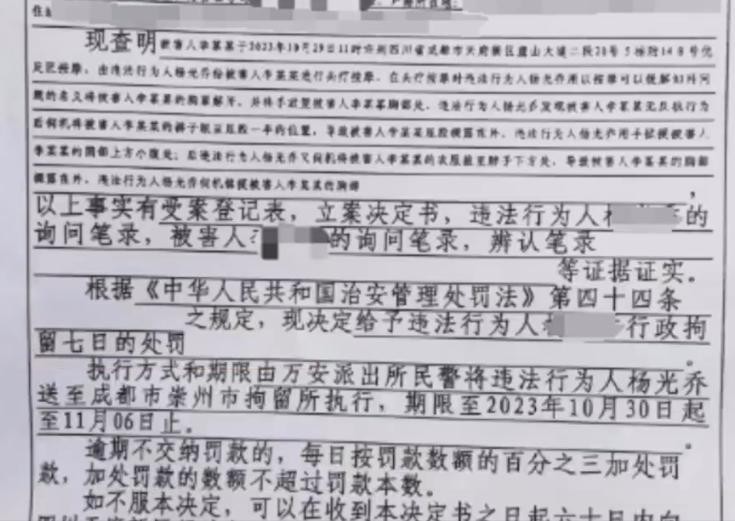 住
现查明被害人李某某于2023年10月29日11时许到四川省成都市天府新区麓山大道二段28号5栋附148号优
足匠按摩,由违法行为人杨光乔给被害人李某某进行头疗按摩,在头疗按摩时违法行为人杨光乔用以按摩可以缓解妇科问
题的名义将被害人李某某的胸罩解开,并将手放置被害人李某某胸部处,违法行为人杨光乔发现被害人李某某无反抗行为
后伺机将被害人李某某的裤子脱至屁股一半的位置,导致被害人李某某屁股裸露在外,违法行为人杨光乔用手猥亵被害人
李某某的阴部上方小腹处;后违法行为人杨光乔又伺机将被害人李某某的衣服掀至脖子下方处,导致被害人李某某的胸部
裸露在外,违法行为人杨光乔伺机猥亵被害人李某某的胸部 ,
以上事实有受案登记表,立案决定书,违法行为人杨 的
询问笔录,被害人 的询问笔录,辨认笔录
等证据证实。
根据《中华人民共和国治安管理处罚法》第四十四条
之规定,现决定给予违法行为人 行政拘
留七日的处罚 。
执行方式和期限由万安派出所民警将违法行为人杨光乔
送至成都市崇州市拘留所执行,期限至2023年10月30日起
至11月06日止。 。
逾期不交纳罚款的,每日按罚款数额的百分之三加处罚
款,加处罚款的数额不超过罚款本数。
如不服本决定,可以在收到本决定书之日起六十日内向